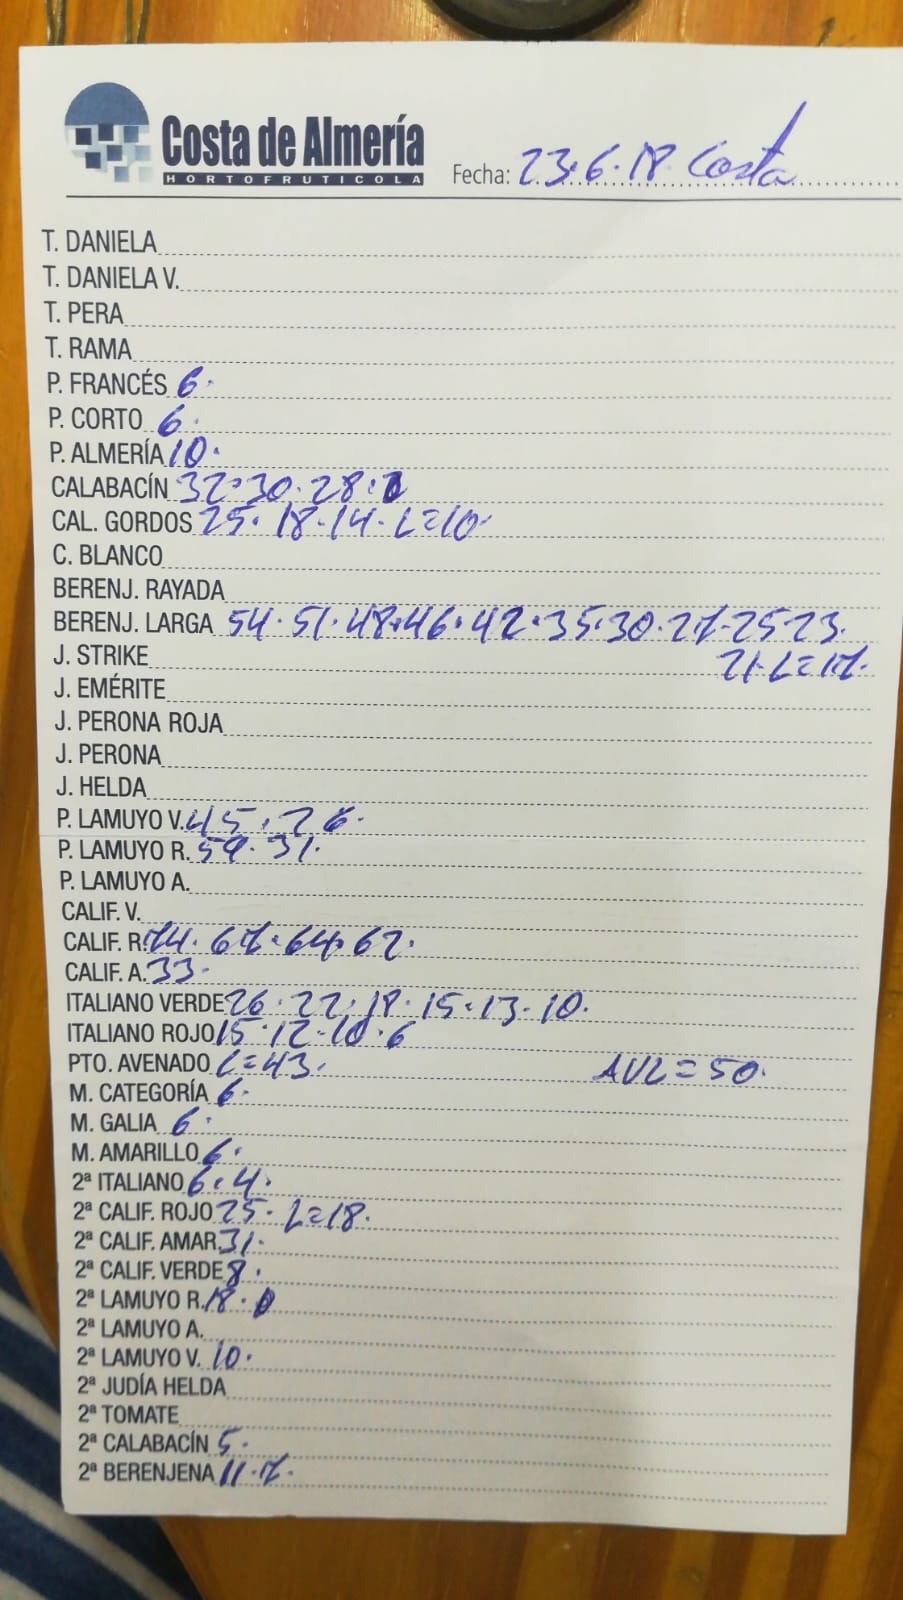 Costa de Almería
HORTOFRUTICOLA
Fecha: 23.6.18 Costa
T. DANIELA
T. DANIELA V.
T. PERA
T. RAMA
P. FRANCÉS 6.
P. CORTO 6.
P. ALMERÍA 10.
CALABACÍN 32.30.28.
CAL. GORDOS 25.18.14.L=10.
C. BLANCO
BERENJ. RAYADA
BERENJ. LARGA 54.51.48.46.42.35.30.27.25 23.
J. STRIKE 21.L=17.
J. EMÉRITE
J. PERONA ROJA
J. PERONA
J. HELDA
P. LAMUYO V. 45.26.
P. LAMUYO R. 59.31.
P. LAMUYO A.
CALIF. V.
CALIF. R. 74.67.64.62.
CALIF. A. 33.
ITALIANO VERDE 26.22.18.15.13.10.
ITALIANO ROJO 15.12.10.6
PTO. AVENADO L=43. AVL=50.
M. CATEGORÍA 6.
M. GALIA 6.
M. AMARILLO 6.
2ª ITALIANO 6.4.
2ª CALIF. ROJO 25. L=18.
2ª CALIF. AMAR. 31.
2ª CALIF. VERDE 8.
2ª LAMUYO R. 18.
2ª LAMUYO A.
2ª LAMUYO V. 10.
2ª JUDÍA HELDA
2ª TOMATE
2ª CALABACÍN 5.
2ª BERENJENA 11.7.